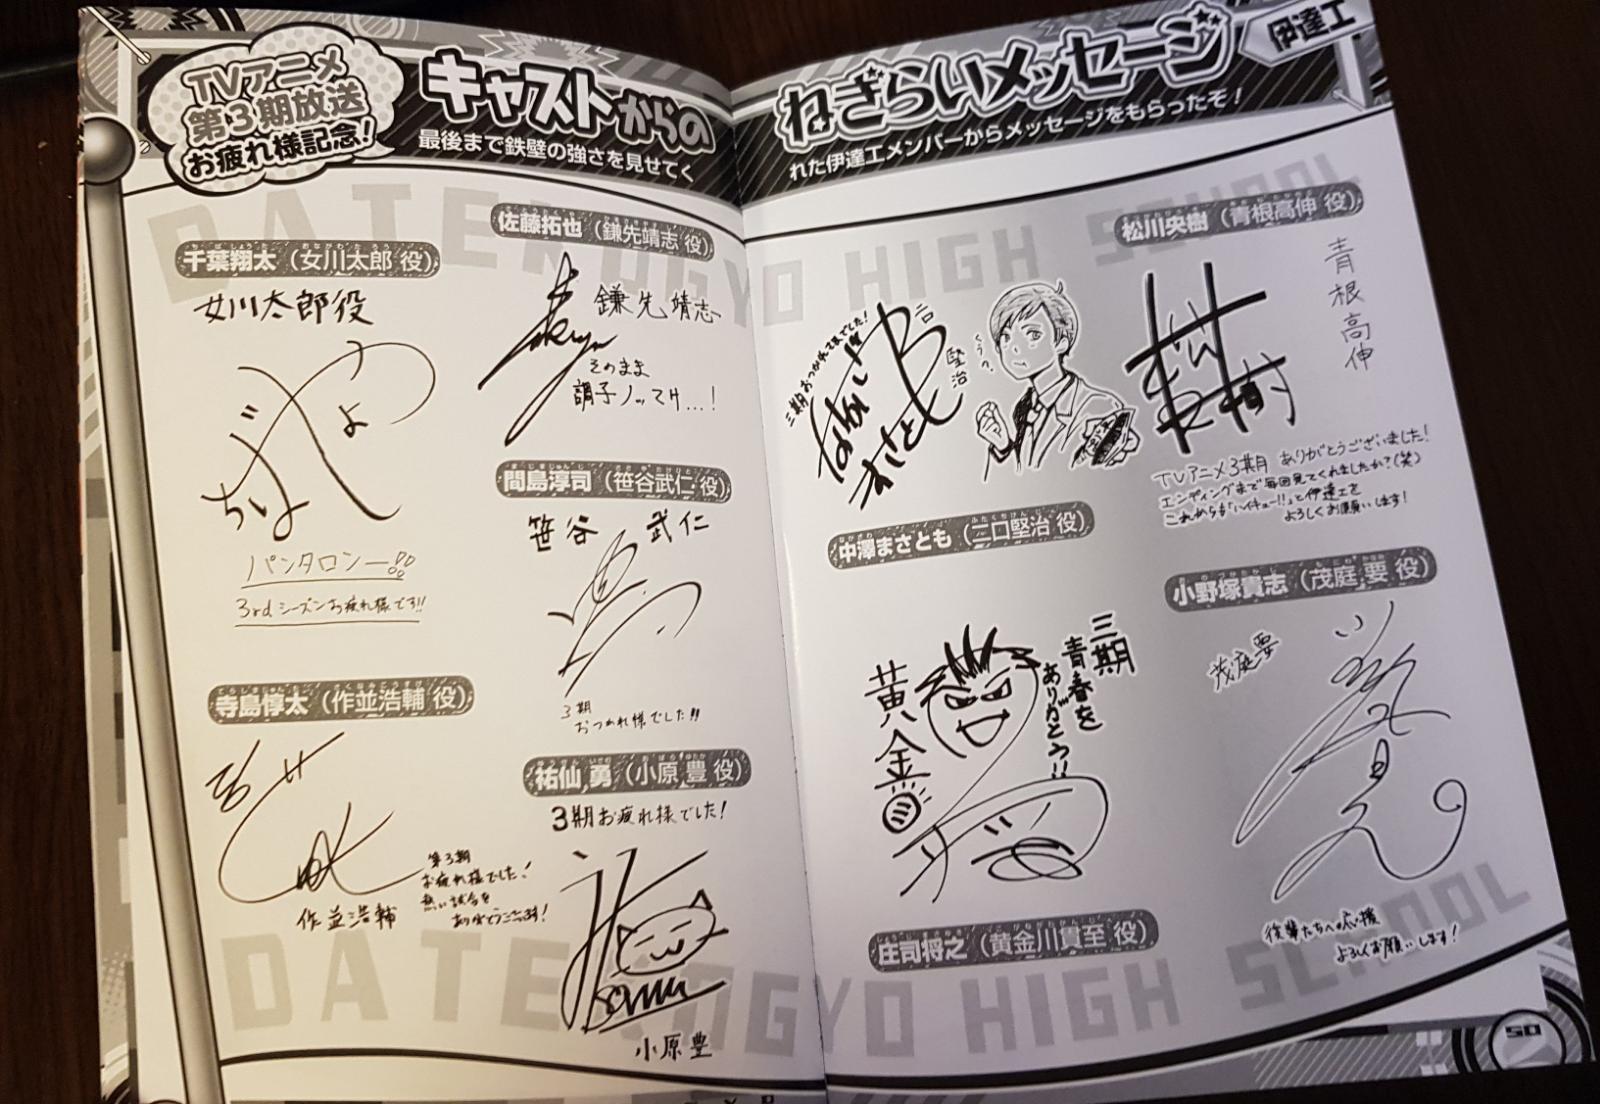 TVアニメ
第3期放送
お疲れ様記念!
キャストからの
ねぎらいメッセージ
伊達工
最後まで鉄壁の強さを見せてく
れた伊達工メンバーからメッセージをもらったぞ!
DATEKOGYO HIGH SCHOOL
千葉翔太(女川太郎 役)
女川太郎役
パンタロンー!!
3rdシーズンお疲れ様です!!
佐藤拓也(鎌先靖志 役)
鎌先靖志
そのまま
調子ノッてけ…!
間島淳司(笹谷武仁 役)
笹谷 武仁
3期
おつかれ様でした!!
寺島惇太(作並浩輔 役)
作並浩輔
第3期
お疲れ様でした!
熱い試合を
ありがとうございます!
祐仙 勇(小原 豊 役)
3期お疲れ様でした!
小原豊
三期おつかれ様でした!
二口
堅治
中澤まさとも(二口堅治 役)
松川央樹(青根高伸 役)
青根高伸
TVアニメ3期 ありがとうございました!
エンディングまで毎回見てくれましたか?(笑)
これからも「ハイキュー!!」と伊達工を
よろしくお願いします!
三期
青春を
ありがとう!!
黄金
庄司将之(黄金川貫至 役)
小野塚貴志(茂庭 要 役)
茂庭要
後輩たちへの応援
よろしくお願いします!
DATEKOGYO HIGH SCHOOL
50